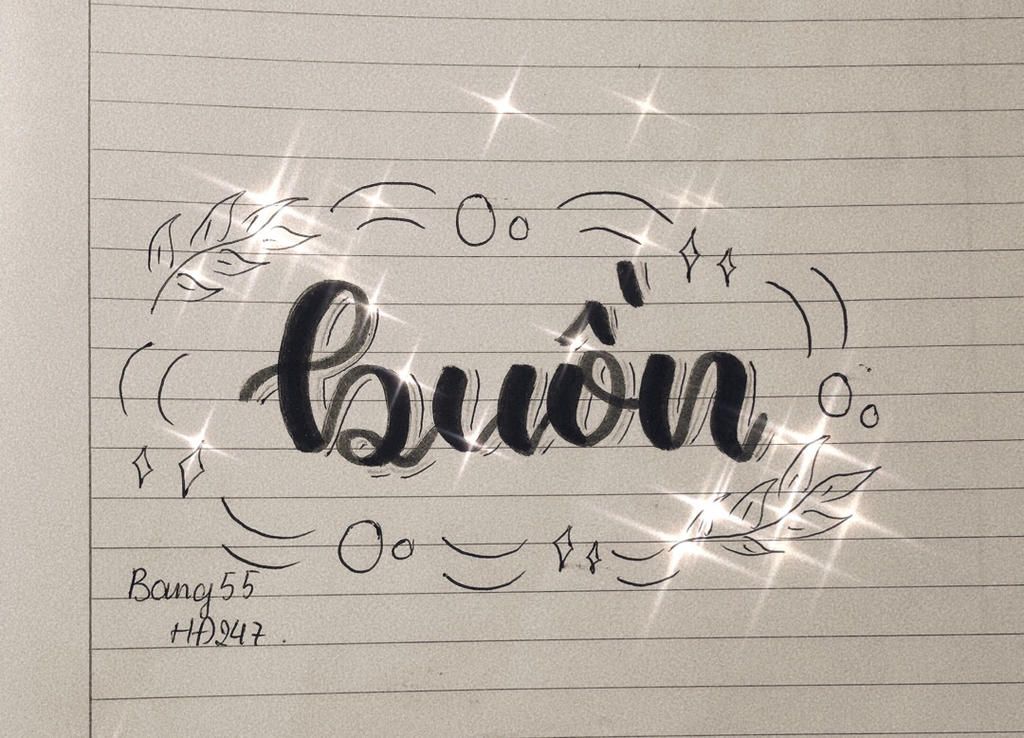 buồn
Bang55
HĐ247.